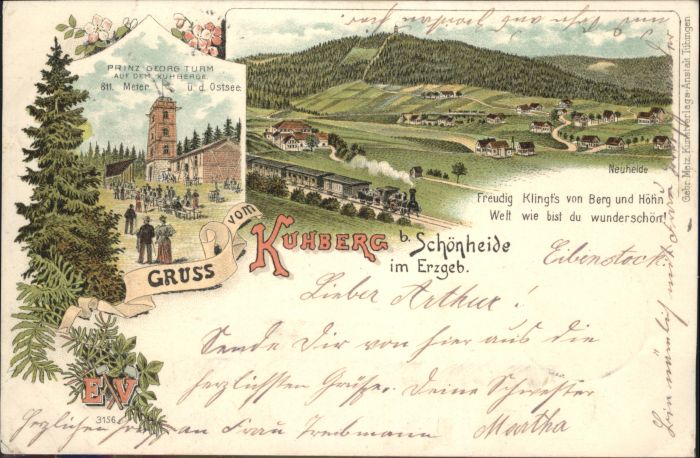 PRINZ GEORG TURM
AUF DEM KUHBERGE.
811. Meter ü. d. Ostsee.
Neuheide
Freudig Klingt's von Berg und Höh'n
Welt wie bist du wunderschön!
GRUSS vom KUHBERG b. Schönheide
im Erzgeb.
Eibenstock.
Lieber Arthur!
Sende Dir von hier aus die
herzlichsten Grüße. Deine Schwester
Martha
Herzlichen an Frau
EV
3156
Gebr. Metz, Kunst-Verlags-Anstalt, Tübingen